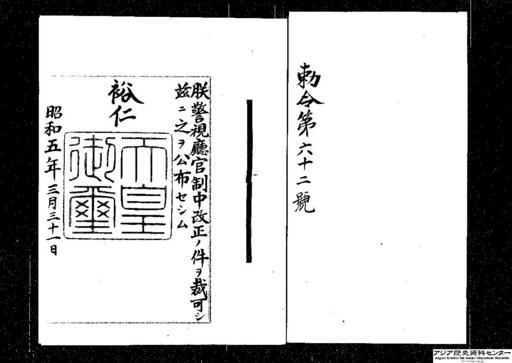 勅令第六十二號
朕警視廳官制中改正ノ件ヲ裁可シ
茲ニ之ヲ公布セシム
裕仁
天皇
御璽
昭和五年三月三十一日
アジア歴史資料センター
Japan Center for Asian Historical Records